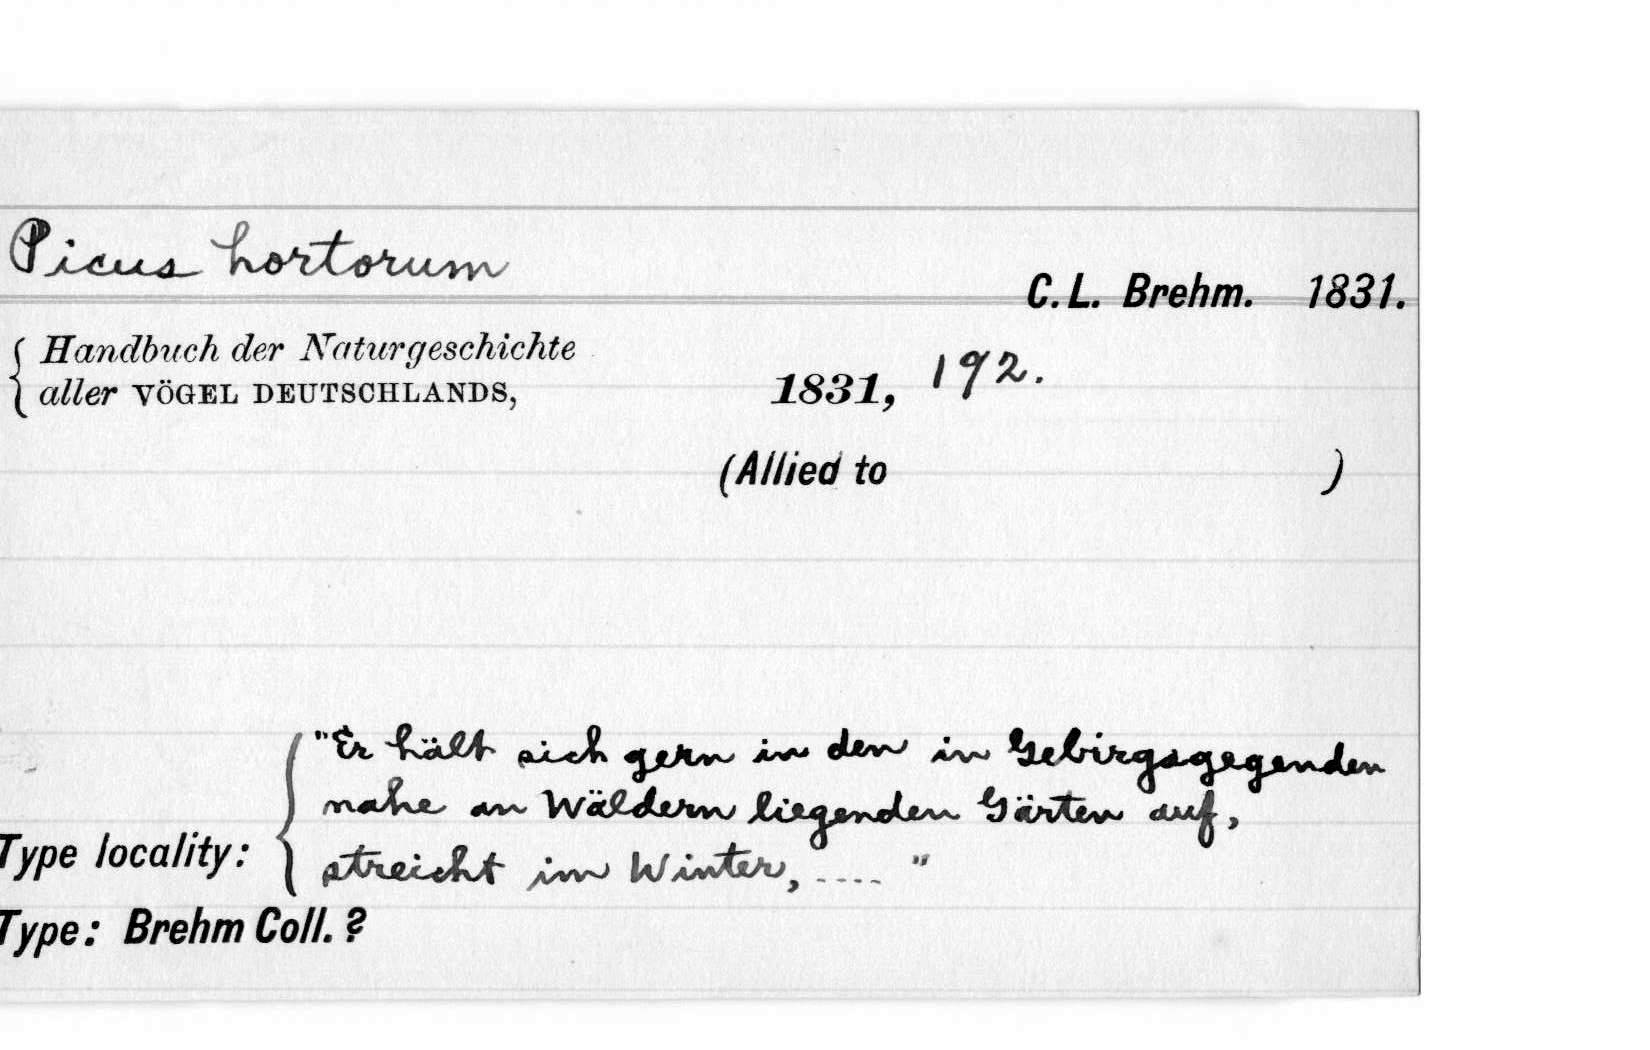 Picus hortorum
C. L. Brehm. 1831.
Handbuch der Naturgeschichte
aller VÖGEL DEUTSCHLANDS, 1831, 192.
(Allied to )
"Er hält sich gern in den in Gebirgsgegenden
nahe an Wäldern liegenden Gärten auf,
Type locality: streicht im Winter, .... "
Type: Brehm Coll. ?